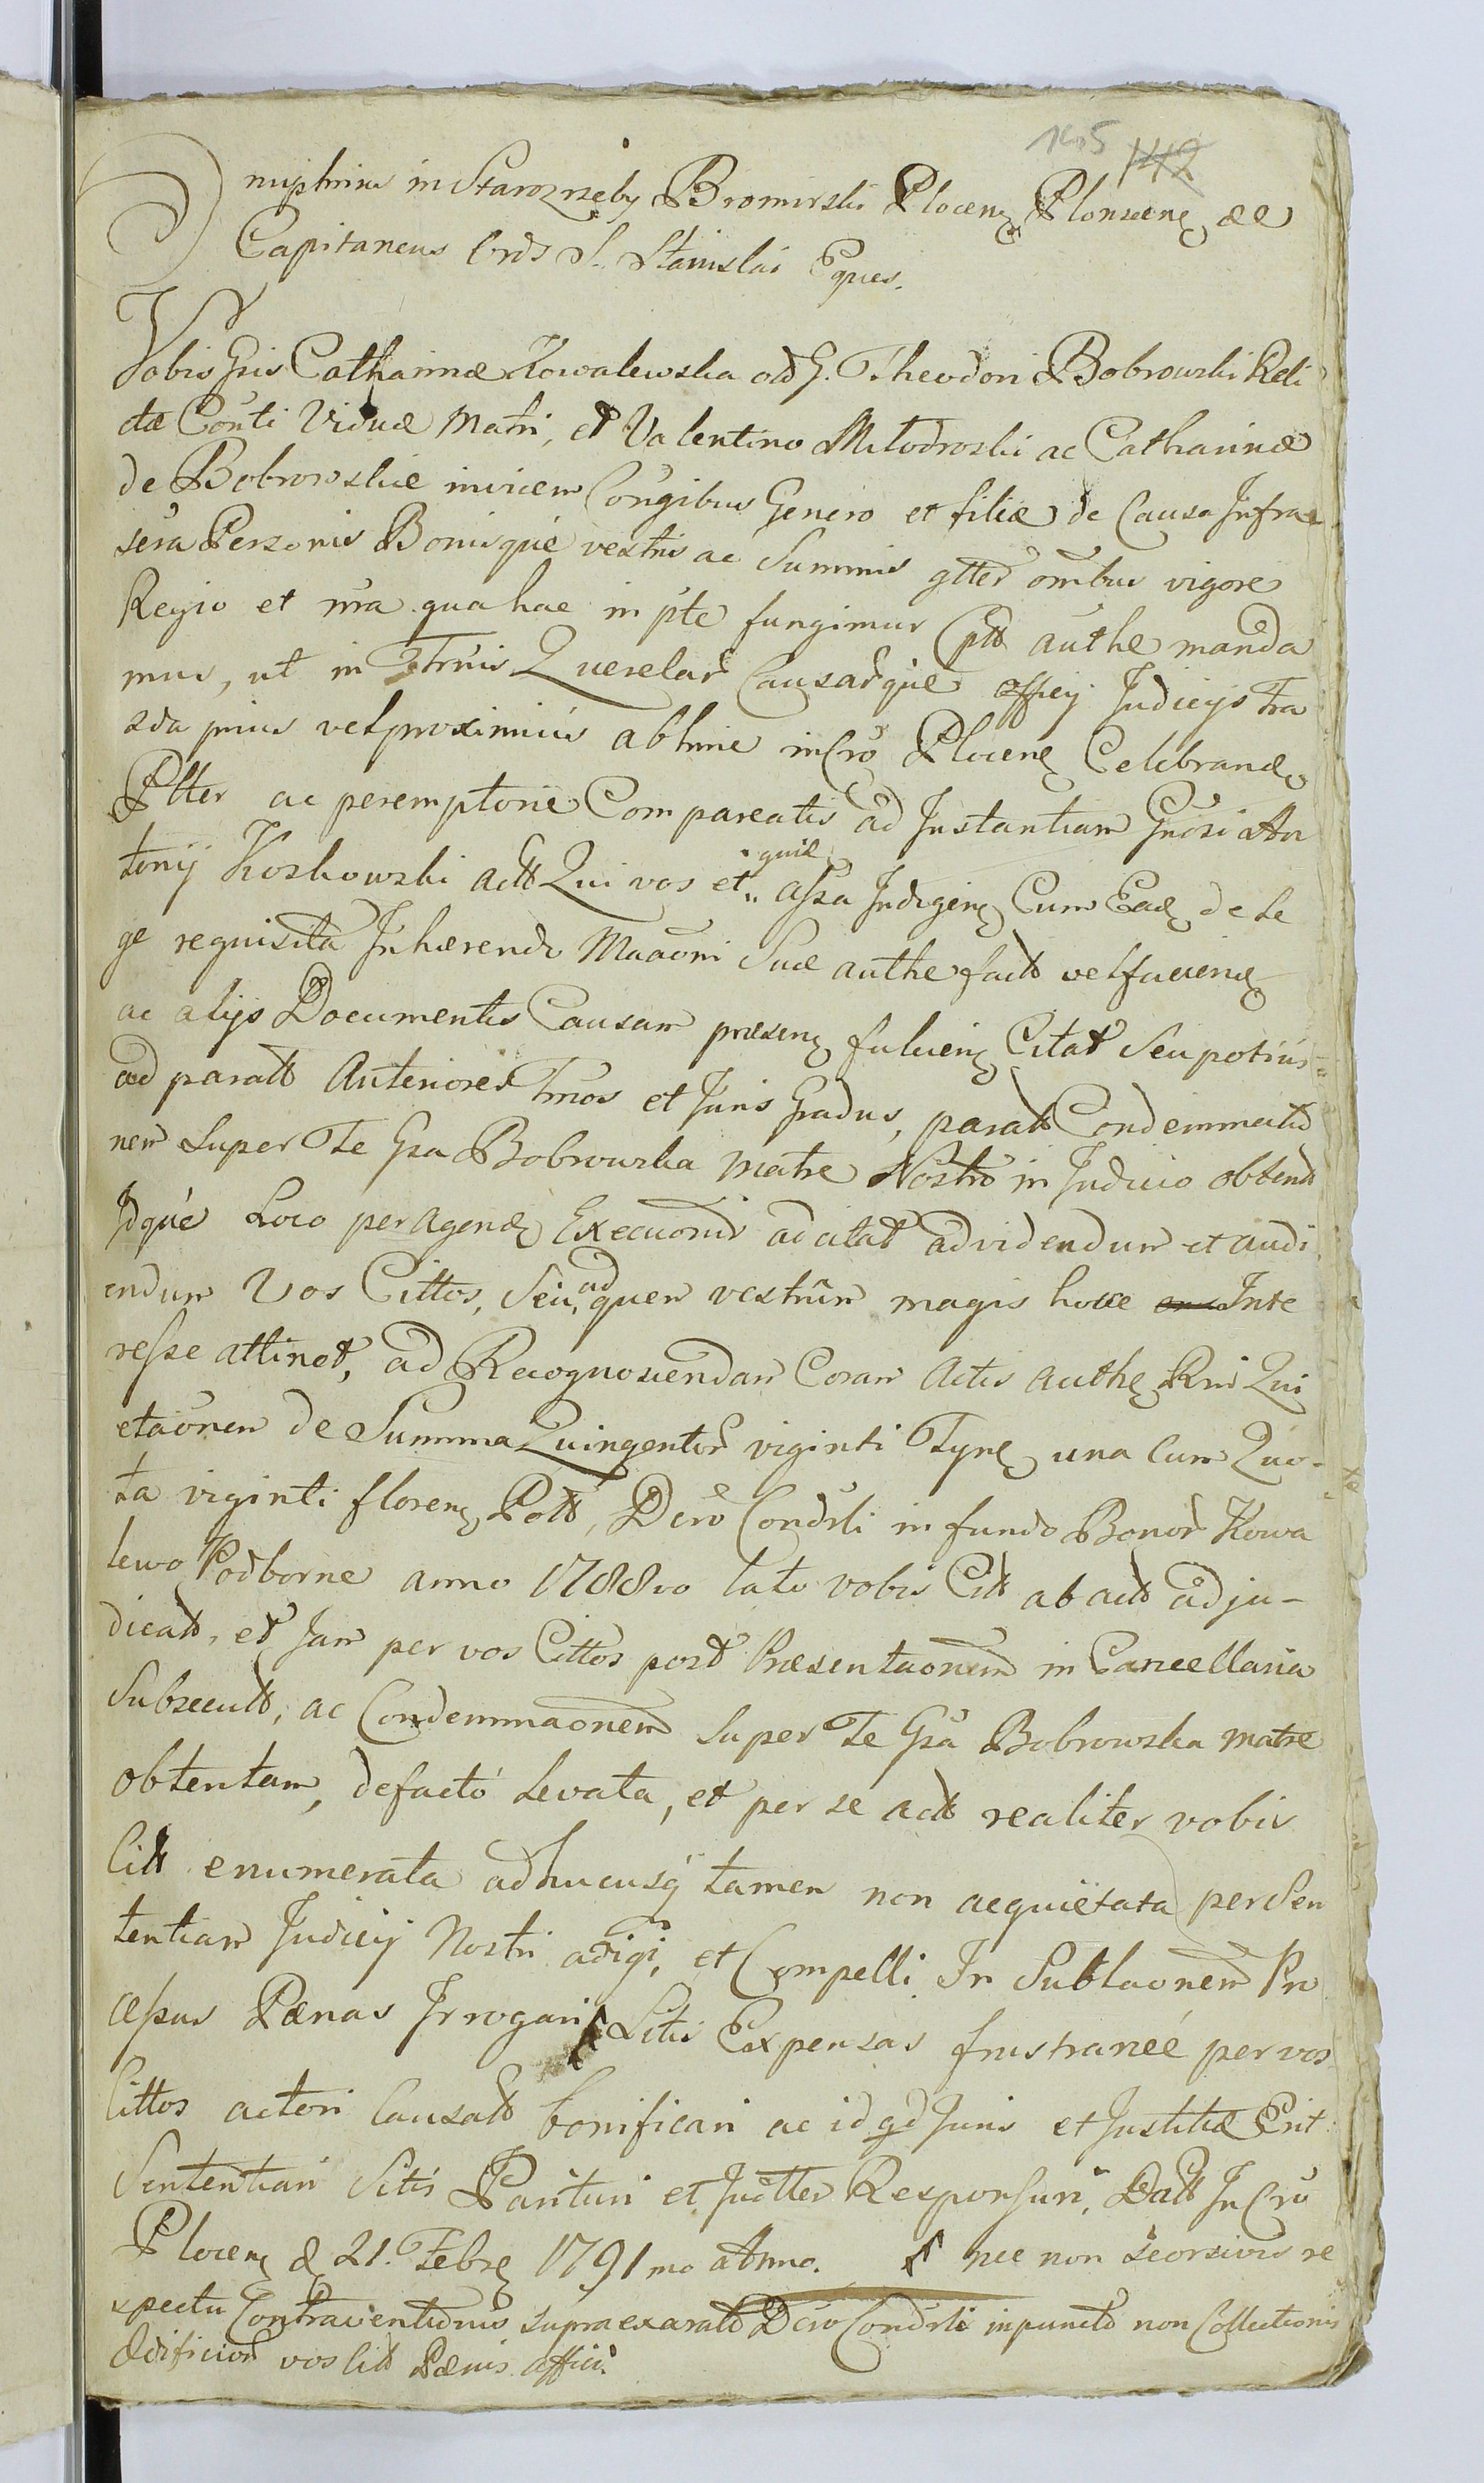 145 142
Onuphrius in Starozreby Bromirski Plocens Plonscens &c
Capitaneus Ords S. Stanislai Eques.
Vobis Gsis Catharinæ Kowalewska od G. Theodori Bobrowski Reli
ctæ Conti Viduæ Matri, et Valentino Mlodroski ac Catharinæ
de Bobrowskie invicem Congibus Genero et filiæ de Causa Infra
sera Personis Bonisque vestris ac Summis gtter omibus vigore
Regio et nra qua hac in pte fungimur Ptt authe manda
mus, ut in Trnis Querelar Causarque officij Judicijs Tra
zda prius vel proximius abhinc in Cro Plocens Celebrand
Pltter ac peremptorie Compareatis ad Instantiam Gnosi An
tonij Koskowski actt Qui vos et quie assa Indigens Cum Ead de Le
ge requisita Inhærendo Maaoni Suæ authe factt vel faciend
ac alijs Documentis Causam præsens fulciens Citat Seu potius
ad paratt Anteriores Tmos et Juris Gradus, paratt Condemnatio
nem Super Te Gsa Bobrowska Matre Nostro in Judicio obtentt
Idque Loco peragend Execuonis ad citat ad videndum et audi
endum Vos Cittos, Seu ad quem vestrum magis hocce Inte
resse attinet, ad Recognoscendam Coram Actis authe Rni Qui
etaonem de Summa Quingentor viginti Tyne una cum Quo-
ta viginti floreno Poll, Dcro Condrli in fundo Bonor Kowa
lewo Podborne anno 1788vo lato vobis Citt ab actt adju-
dicatt, et Jam per vos Cittos post Præsentaonem in Cancellaria
Subsecutt, ac Condemnaonem Super Te Gsa Bobrowska Matre
obtentam, defacto Levata, et per se actt realiter vobis
Citt enumerata adhucusq tamen non acquietata per Sen
tentiam Judicij Nostri adigi, et Compelli In Subtaonem Pro
cessus Pænas Irrogari Litis Expensas frustraneé per vos
Cittos actori Causatt bonificari ac id qd Juris et Justitiæ Erit
Sententiari Sitis Parituri et Judtter Responsuri, Datt In Cro
Plocens d 21. Febre 1791mo Anno. nec non seorsivis re
spectu Contraventionis supraexaratt Dcro Condrli in puncto non Collectionis
Ædificior vos Citt Pænis affici.